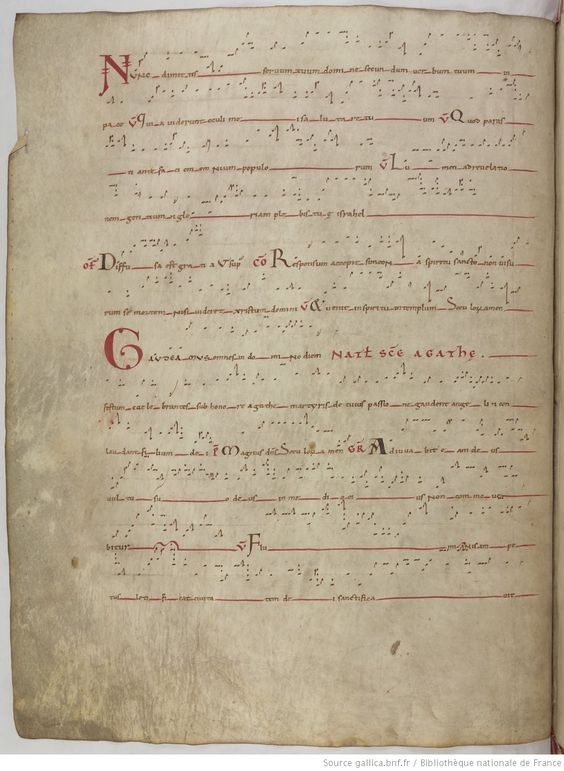 Nunc dimittis servum tuum domine secundum verbum tuum in
pace V Quia viderunt oculi me i salu ta re tu um V Quod paras
ti ante fa ci em om nium popu lo rum V Lu men ad revelatio
nem gen tium & glo riam ple bis tu e israhel
OF Diffu sa est gra ti a V sup CO Responsum accepit simeon a spiritu sancto non visu
rum se mortem nisi videret xpistum domini V & venit inspiritu intemplum Seculorum amen
Gaudea mus omnes in do mi no diem NAT SCE AGATHE.
festum cae le brantes sub hono re agathe martyris de cuius passio ne gaudent ange li & con
lau dant fi lium de i Seculorum amen GR Adiuva bit e am de us
vul tu su o de us in me di o ei us non com mo ve
bitur V Flu minis im pe
tus leti fi cat civita tem de i sanctifica vit
Source gallica.bnf.fr / Bibliothèque nationale de France